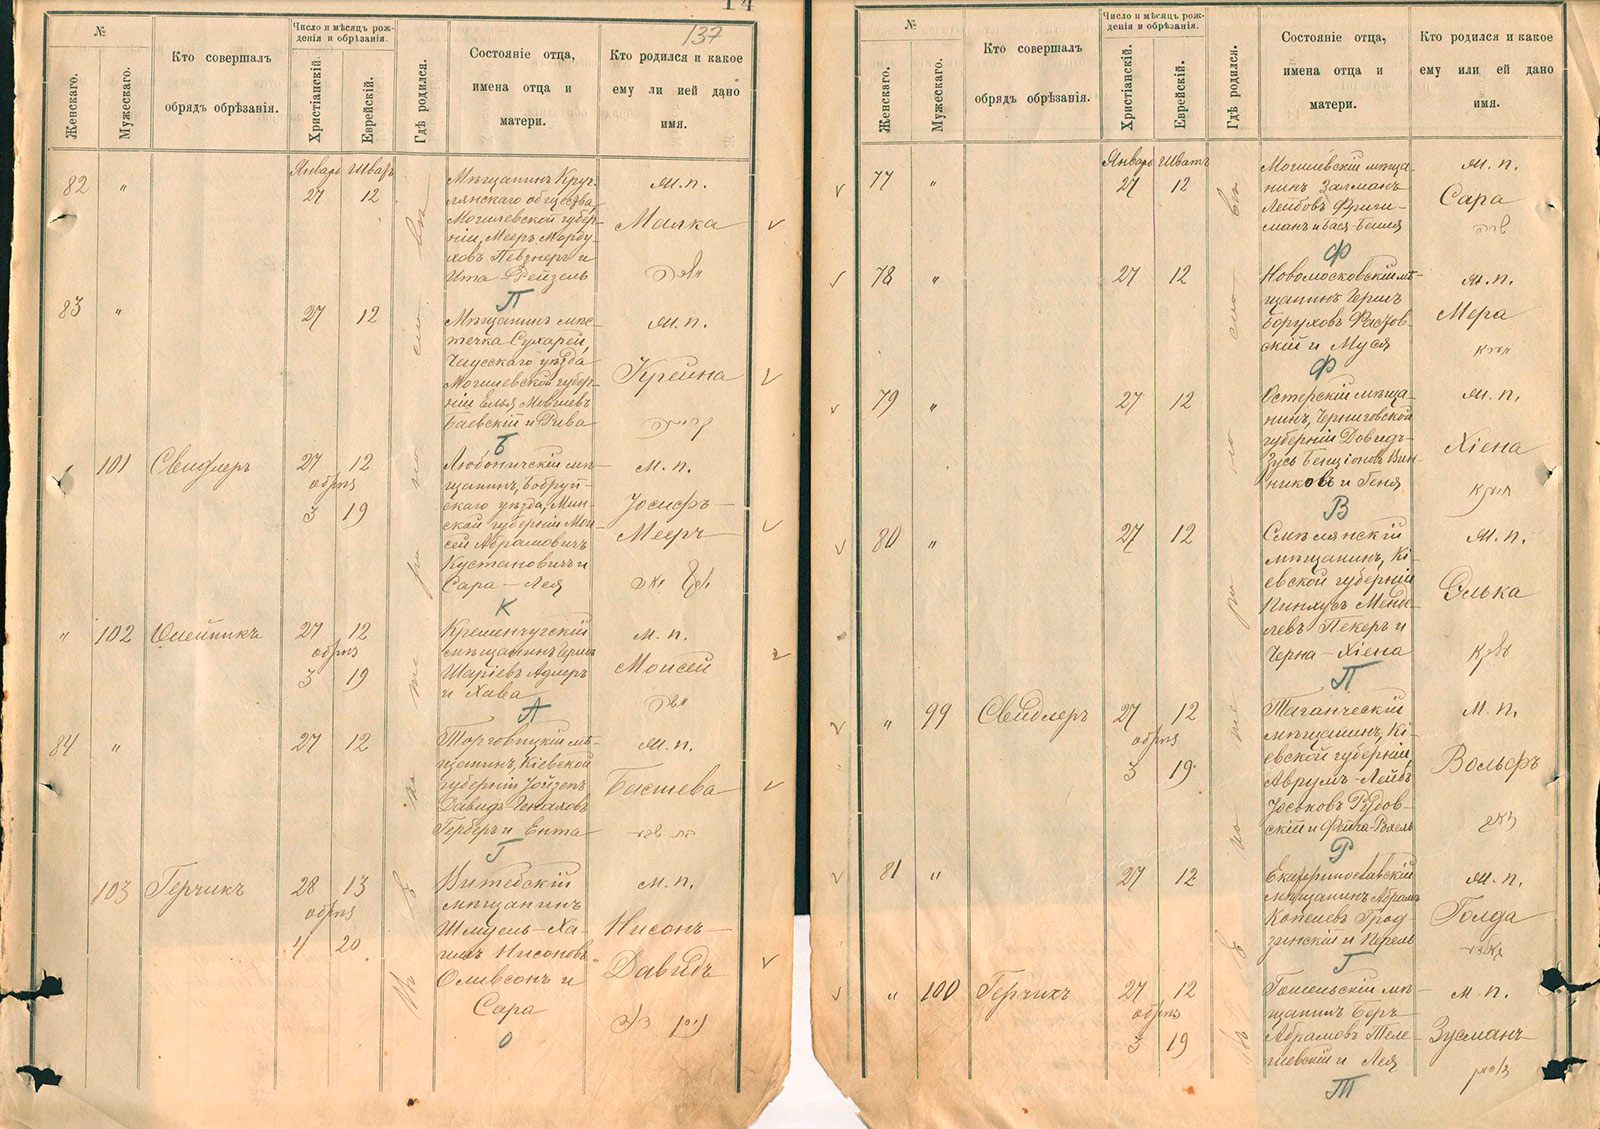 14
137
№
Женскаго.
Мужескаго.
Кто совершалъ
обрядъ обрѣзанія.
Число и мѣсяцъ рож-
денія и обрѣзанія.
Христіанскій.
Еврейскій.
Гдѣ родился.
Состояніе отца,
имена отца и
матери.
Кто родился и какое
ему ли ией дано
имя.
Январь Шватъ
82 " 27 12
Мѣщанинъ Круг-
лянскаго общества,
Могилевской губер-
ніи, Мееръ Морду-
ховъ Певзнеръ и
Ита-Рейзель
м.п.
Малка
מאלקה
П
83 " 27 12
Мѣщанинъ мѣс-
течка Сухарей,
Чаусскаго уѣзда
Могилевской губер-
ніи Елья Мовшевъ
Баевскій и Рива
м.п.
Крейна
קריינה
Б
101 Свидлеръ 27 12
обрѣз
3 19
Любоничскій мѣ-
щанинъ, Бобруй-
скаго уѣзда, Мин-
ской губерніи Мои-
сей Абрамовичъ
Кустановичъ и
Сара-Лея
м.п.
Іосифъ-
Мееръ
К
" 102 Олейникъ 27 12
обрѣз
3 19
Кременчугскій
мѣщанинъ Герш
Шаріевъ Адлеръ
и Хава
м.п.
Моисей
משה
А
84 " 27 12
Торговицкій мѣ-
щанинъ, Кіевской
губерніи Іойзеп
Давидъ Генаховъ
Герберъ и Ента
м.п.
Басшева
בת שבע
Г
103 Герчикъ 28 13
обрѣз
4 20
Витебскій
мѣщанинъ
Шмуель-Ха-
имъ Нисоновъ
Оливсонъ и
Сара
м.п.
Нисонъ-
Давидъ
ניסן דוד
О
въ
сло
ри
те
ка
Е
№
Женскаго.
Мужескаго.
Кто совершалъ
обрядъ обрѣзанія.
Число и мѣсяцъ рож-
денія и обрѣзанія.
Христіанскій.
Еврейскій.
Гдѣ родился.
Состояніе отца,
имена отца и
матери.
Кто родился и какое
ему или ей дано
имя.
Январь Шватъ
77 " 27 12
Могилевскій мѣща-
нинъ Залманъ
Лейбовъ Фриги-
манъ и Бася-Бейля
м.п.
Сара
שרה
Ф
78 " 27 12
Новомосковскій мѣ-
щанинъ Герш
Боруховъ Фастов-
скій и Муся
м.п.
Мера
מערא
Ф
79 " 27 12
Остерскій мѣща-
нинъ, Черниговской
губерніи Довидъ-
Зусь Бенціоновъ Вин-
никовъ и Геня
м.п.
Хіена
חיענא
В
80 " 27 12
Смѣлянскій
мѣщанинъ, Кі-
евской губерніи
Пинхусъ Менде-
левъ Пекеръ и
Черна-Хіена
м.п.
Элька
עלקא
П
" 99 Свидлеръ 27 12
обрѣз
3 19
Таганческій
мѣщанинъ, Кі-
евской губерніи,
Аврумъ-Лейбъ
Іоськовъ Рудов-
скій и Фейга-Рахель
м.п.
Вольфъ
וואלף
Р
81 " 27 12
Екатеринославскій
мѣщанинъ Абрамъ
Копелевъ Грод-
зинскій и Перель
м.п.
Голда
גאלדא
Г
" 100 Герчикъ 27 12
обрѣз
3 19
мѣ-
щанинъ Беръ
Абрамовъ Теле-
шевскій и Лея
м.п.
Зусманъ
זוסמן
Т
въ
сло
ри
те
ка
Е